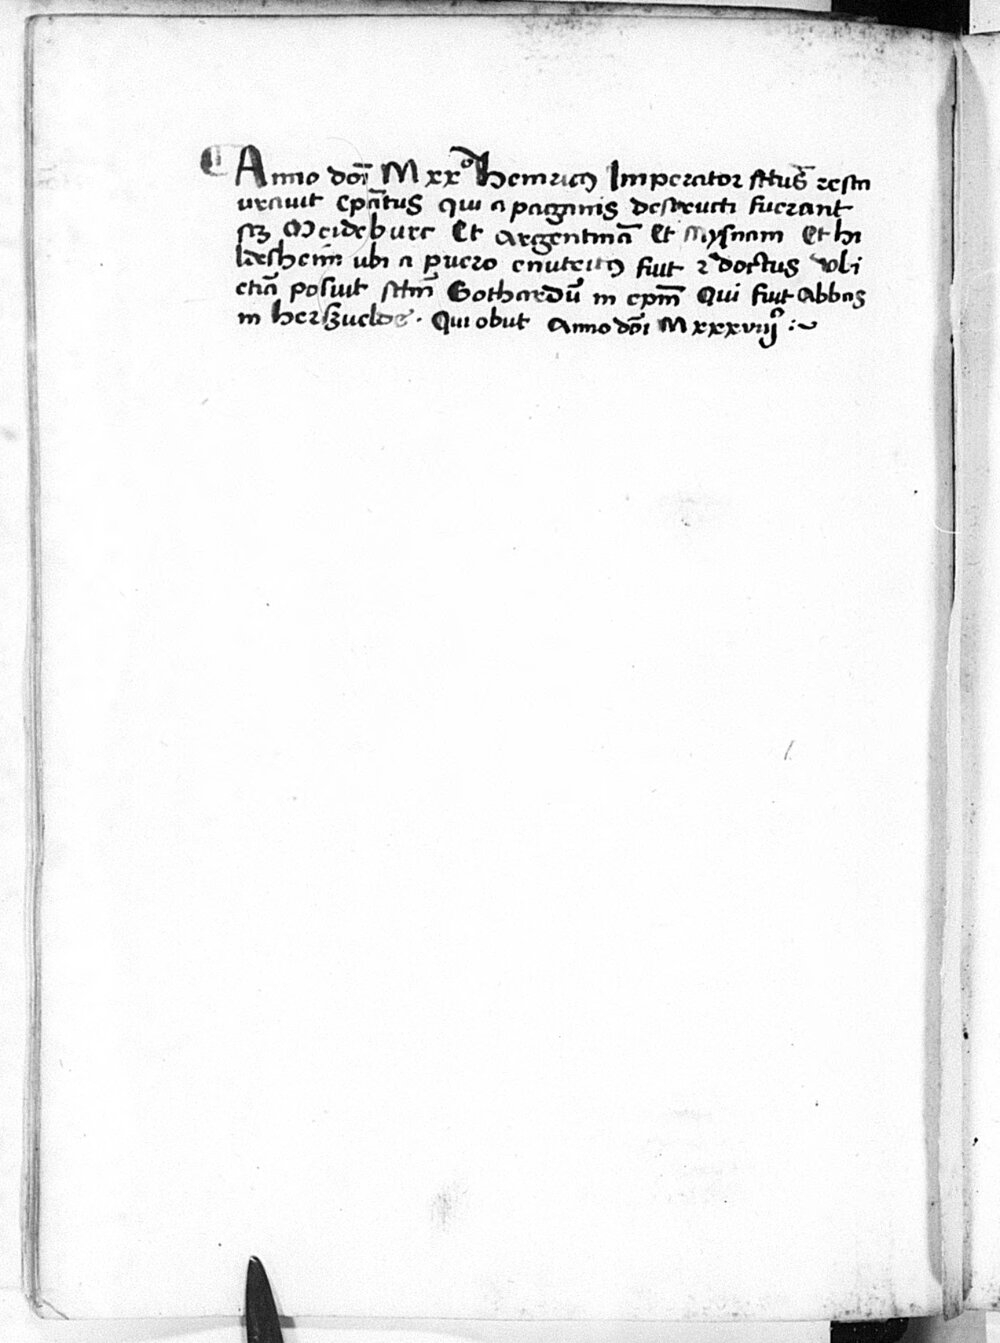 Anno dōī Mxxº henricꝰ Imperator sctūs resta
uravit epātus qui a paganis destructi fuerant
sꝫ Meideburc Et Argentinā Et Mysnam Et hi
ldesheim ubi a puero enutritꝰ fuit ⁊ doctus vbi
etiā posuit sctm̄ Gothardū in epm̄ Qui fuit Abbas
in herszuelde. Qui obijt Anno dōī Mxxxviijº :~